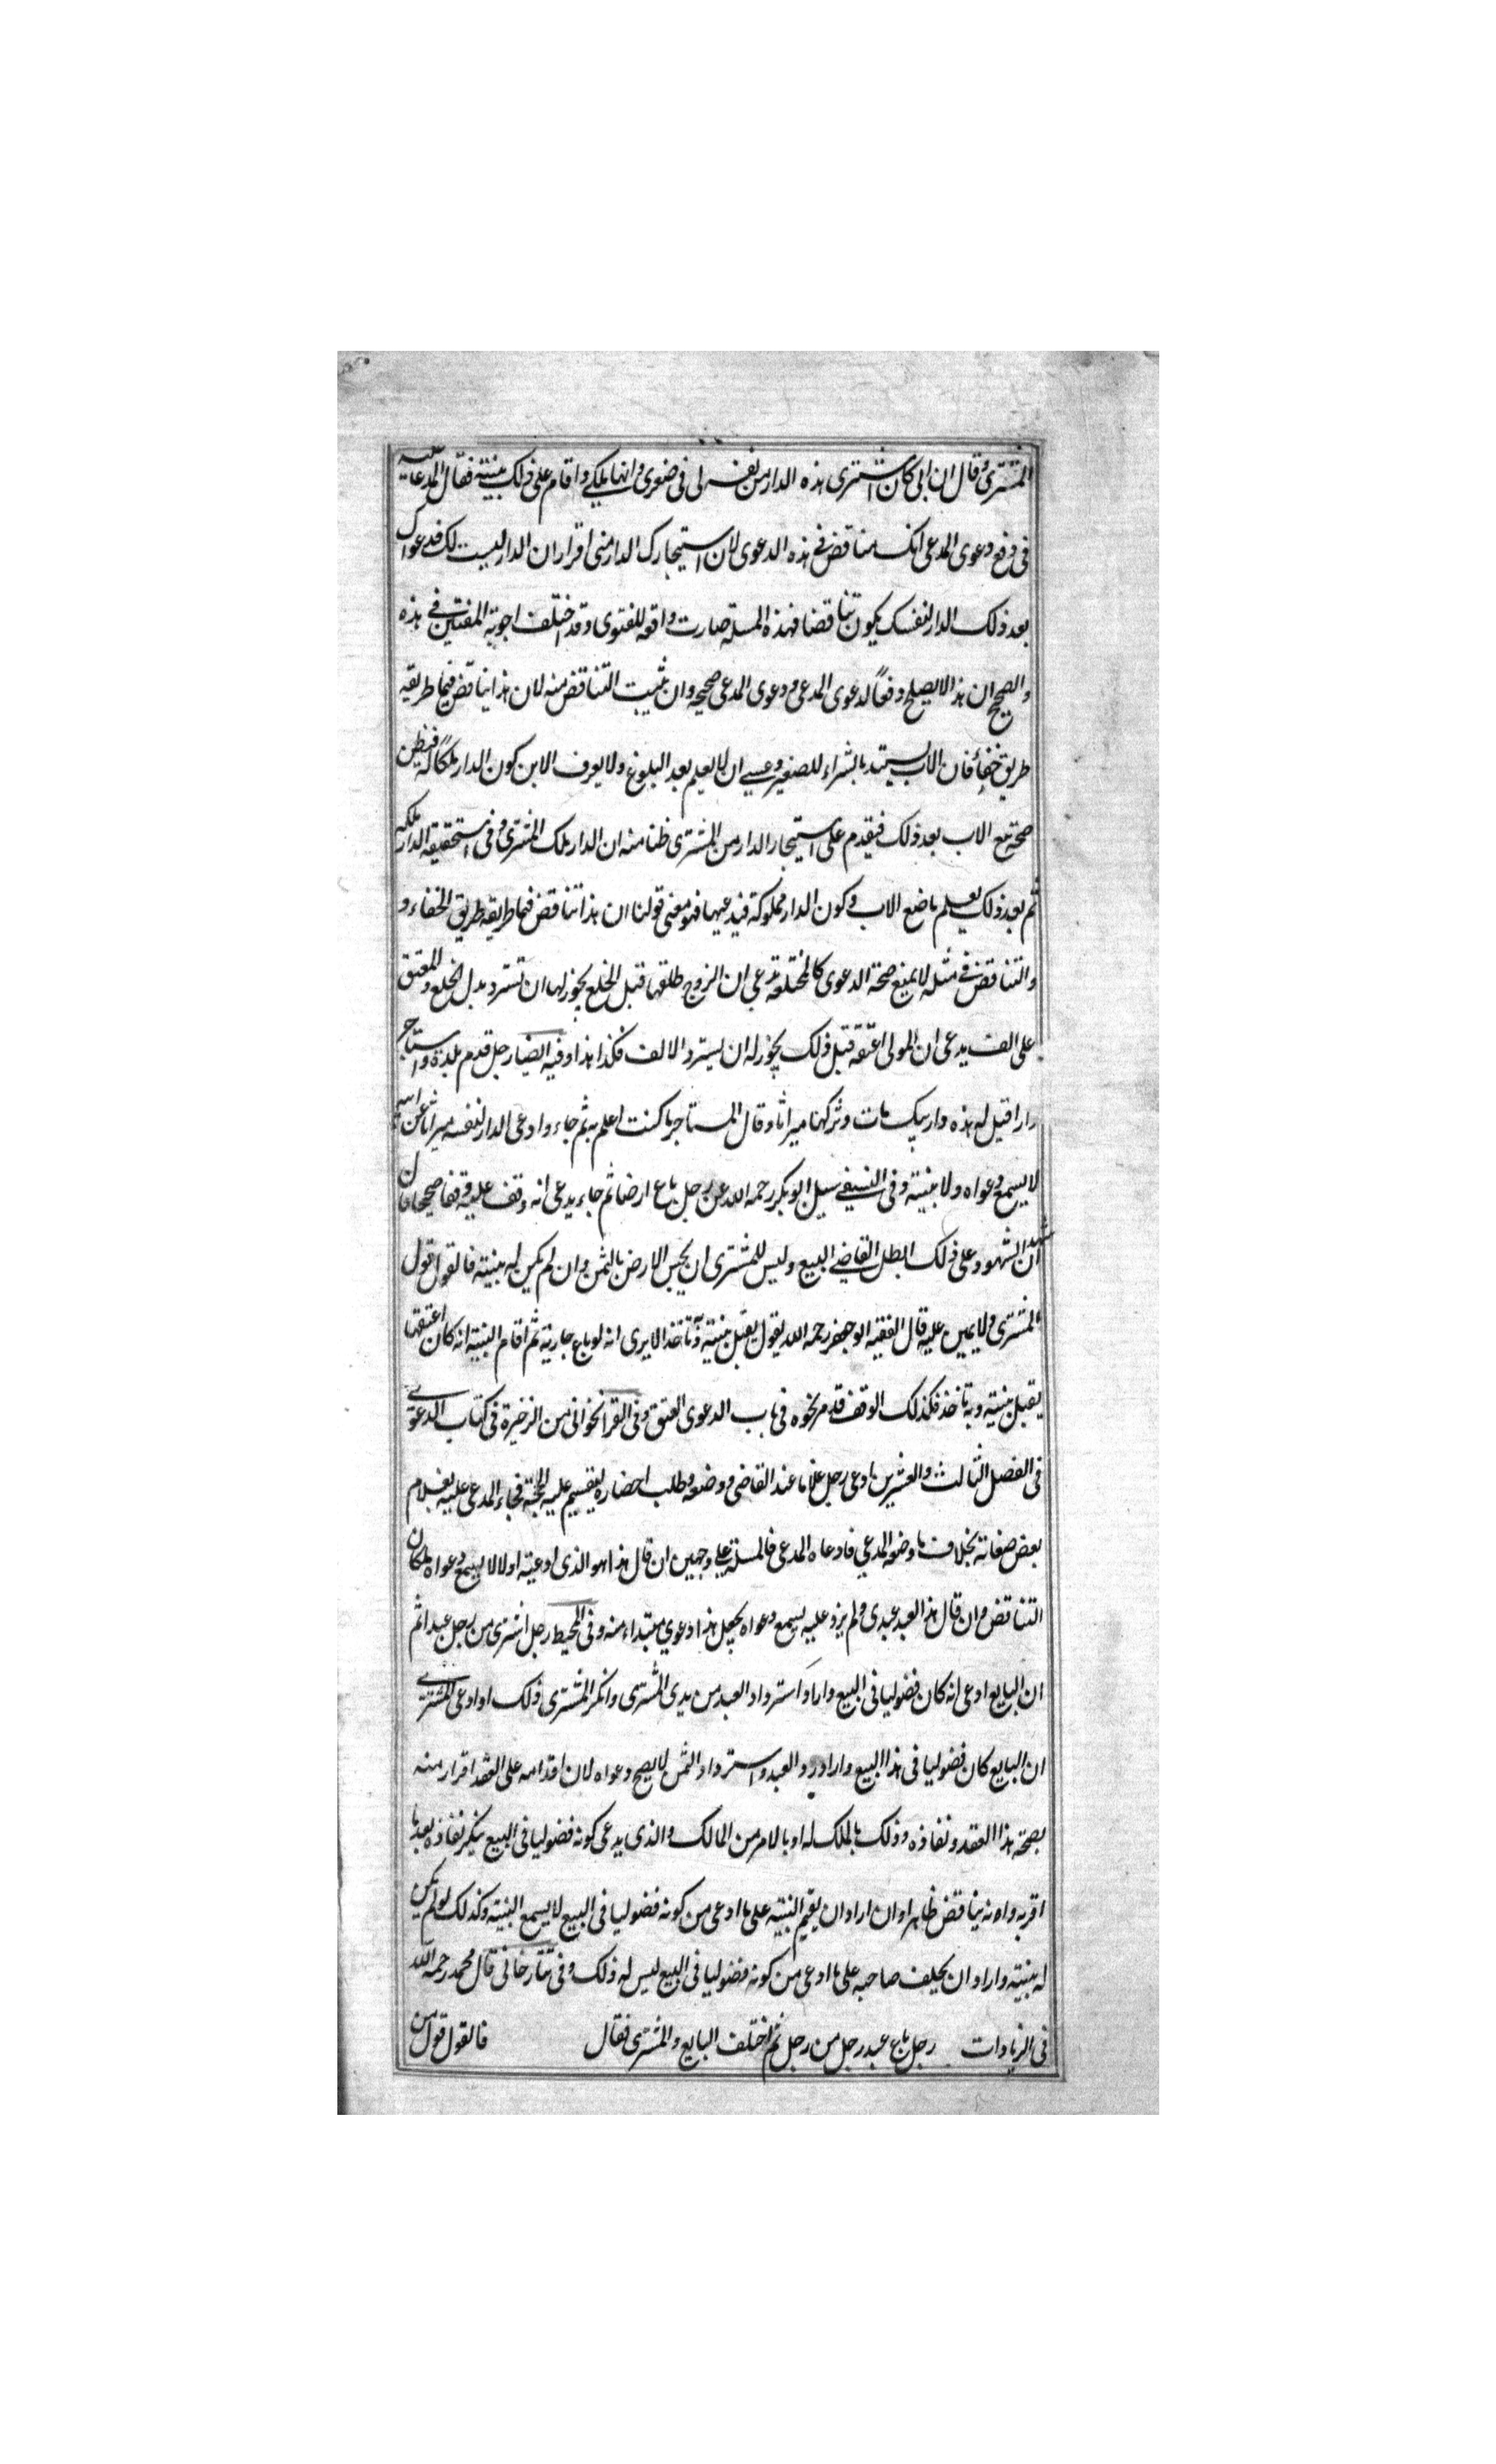 المشترى وقال ان ابى كان اشترى هذه الدار من نفسه لى فى صغرى وانها ملكي واقام على ذلك بينته فقال المدعا عليه
فى دفع دعوى المدعى انك مناقض فى هذه الدعوى لان استيجارك الدار منى اقرار ان الدار ليست لك فدعواك
بعد ذلك الدار لنفسك يكون تناقضا فهذه المسئلة صارت واقعه للفتوى وقد اختلف اجوبة المفتين فى هذه
والصحيح ان هذا لا يصلح دفعًا لدعوى المدعى ودعوى المدعى صحيحه وان يثبت التناقض منه لان هذا يناقض فيما طريقه
طريق خفاء فان الاب يستبد بالشراء للصغير وعسى ان لا يعلم بعد البلوغ ولا يعرف الابن كون الدار ملكًا له فيظن
صحة بيع الاب بعد ذلك فيقدم على استيجار الدار من المشترى ظنا منه ان الدار ملك المشترى وفى الحقيقة الدار ملكه
ثم بعد ذلك يعلم ما صنع الاب وكون الدار مملوكة فيدعيها فهو معنى قولنا ان هذا تناقض فيما طريقه طريق الخفاء و
والتناقض فى مثله لا يمنع صحة الدعوى كالمختلعة تدعى ان الزوج طلقها قبل الخلع يجوز لها ان تسترد بدل الخلع والمعتق
على الف يدعى ان المولى اعتقه قبل ذلك يجوز له ان يسترد الالف فكذا هذا وفيه ايضا رجل قدم بلدة واستاجر
دارا قيل له هذه دار ابيك مات وتركها ميراثا وقال المستاجر ما كنت اعلم به ثم جاء وادعى الدار لنفسه ميراثا عن ابيه
لا يسمع دعواه ولا بينته وفى النسفى سيل ابو بكر رحمه الله عن رجل باع ارضا ثم جاء يدعى انه وقف عليه وقفا صحيحا فان
شهد ان الشهود على ذلك ابطل القاضى البيع وليس للمشترى ان يحبس الارض بالثمن وان لم يكن له بينته فالقول قول
المشترى ولا يمين عليه قال الفقيه ابو جعفر رحمه الله يقول يقبل بينته وبه ناخذ الا يرى انه لو باع جارية ثم اقام البينة انه كان اعتقها
يقبل بينته وبه ناخذ فكذلك الوقف قد مر نحوه فى باب الدعوى العتق وفى القراخوانى من الذخيرة فى كتاب الدعوى
فى الفصل الثالث والعشرين ادعى رجل غلاما عند القاضى ووصفه وطلب احضاره ليقيم عليه الحجة فجاء المدعى عليه بغلام
بعض صفاته بخلاف ما وصفه المدعي فادعاه المدعى فالمسئلة على وجهين ان قال هذا هو الذى ادعيته اولا لا يسمع دعواه لمكان
التناقض وان قال هذا العبد عبدى ولم يزد عليه يسمع دعواه يجعل هذا دعوي مبتداء منه وفى المحيط رجل اشترى من رجل عبدا ثم
ان البايع ادعى انه كان فضوليا فى البيع واراد استرداد العبد من يدى المشترى وانكر المشترى ذلك او ادعى المشترى
ان البايع كان فضوليا فى هذا البيع واراد رد العبد واسترداد الثمن لا يصح دعواه لان اقدامه على العقد اقرار منه
بصحة هذا العقد ونفاذه وذلك بالملك له او بالامر من المالك والذى يدعى كونه فضوليا فى البيع ينكر نفاذه بعد ما
اقر به وانه يناقض ظاهرا وان اراد ان يقيم البينة على ما ادعى من كونه فضوليا فى البيع لا يسمع البينته وكذلك لو لم يكن
له بينته واراد ان يحلف صاحبه على ما ادعى من كونه فضوليا فى البيع ليس له ذلك وفى تتارخانى قال محمد رحمه الله
فى الزيادات رجل باع عبد رجل من رجل ثم اختلف البايع والمشترى فقال فالقول قول من